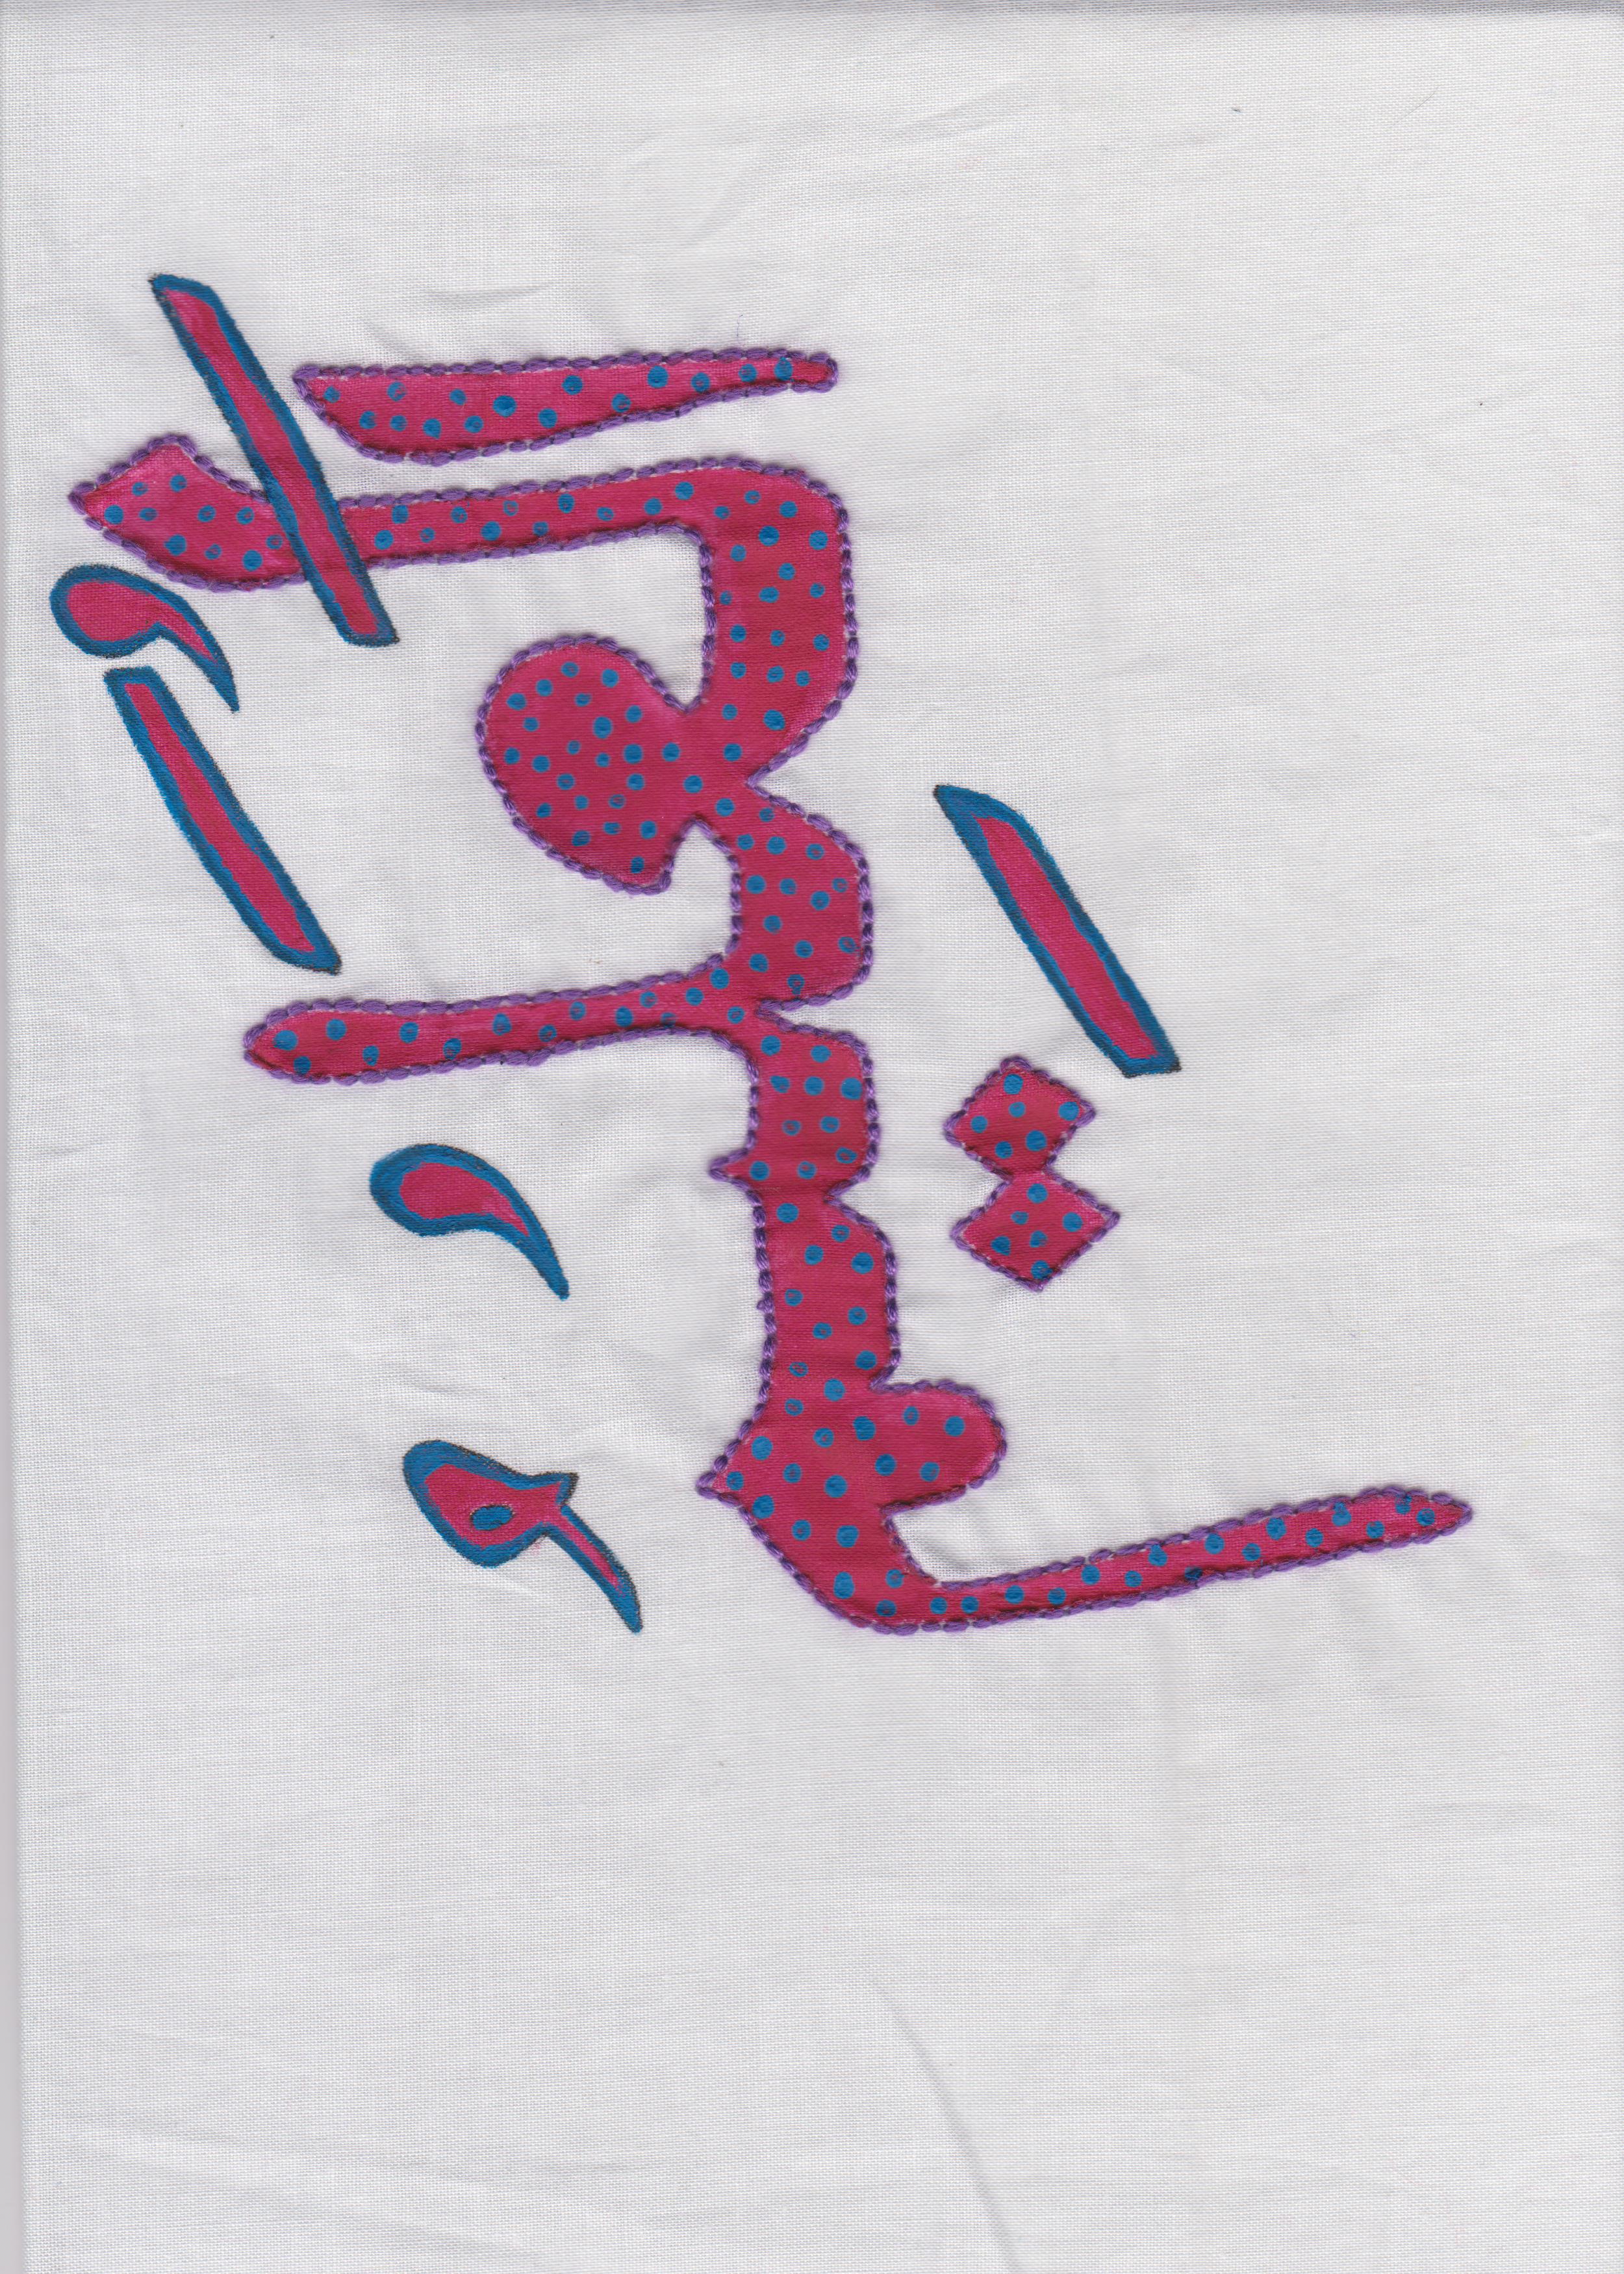 اَلْعَلِيْمُ